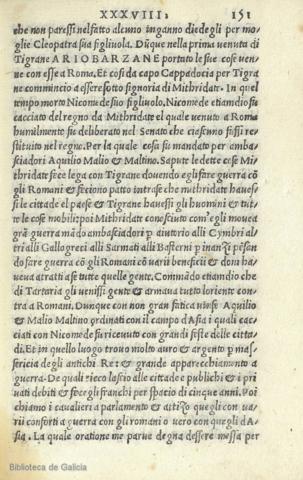 XXXVIII. 151
che non paressi nel fatto alcuno inganno diede gli per mo
glie Cleopatra sua figliuola. Dũque nella prima venuta di
Tigrane ARIOBARZANE portato le sue cose ven
ne con esse a Roma. Et cosi da capo Cappadocia per Tigra
ne commincio a essere sotto signoria di Mithridate. In quel
tempo morto Nicomede suo figliuolo, Nicomede etiam dio fu
cacciato del regno da Mithridate el quale venuto a Roma
humilmente fu deliberato nel Senato che ciascuno fussi re
stituito nel regno. Per la quale cosa fu mandato per amba
sciadori Aquilio Malio & Maltino. Sapute le dette cose Mi
thridate fece lega con Tigrane douendo egli fare guerra cõ
gli Romani & fecion patto intra se che muthridate hauess
si le cittade el paese & Tigrane hauessi gli huomini & tut
te le cose mobili: poi Mithridate conosciuto com'egli mouea
grã guerra mãdo ambasciadori ꝑ aiutorio alli Cymbri al
tri alli Gallogreci alli Sarmati alli Basterni ꝑ inanzi pẽsan
do fare guerra cõ gli Romani cõ varii beneficii & doni ha
veua atratti a se tutte quelle gente. Commãdo etiam dio che
di Tartaria gli uenissi gente & armaua tutto loriente con
tra a Romani. Dunque con non gran fatica vinse Aquilio
& Malio Maltino ordinati con il campo d'Asia i quali cac
ciati con Nicomede fu riceuuto con grandi feste delle citta
di. Et in quello luogo trouo molto auro & argento ꝑ mas
sericia degli antichi Re: & grande apparecchiamento a
guerra. De quali ricco lascio alle cittade e publichi & i pri
uati debiti & fecegli franchi per spacio di cinque anni. Poi
chiamo i cavalieri a parlamento & attizo quegli con va
rii conforti a guerra con gli romani o vero con quegli dA
sia. La quale oratione me parue degna dessere messa per
Biblioteca de Galicia